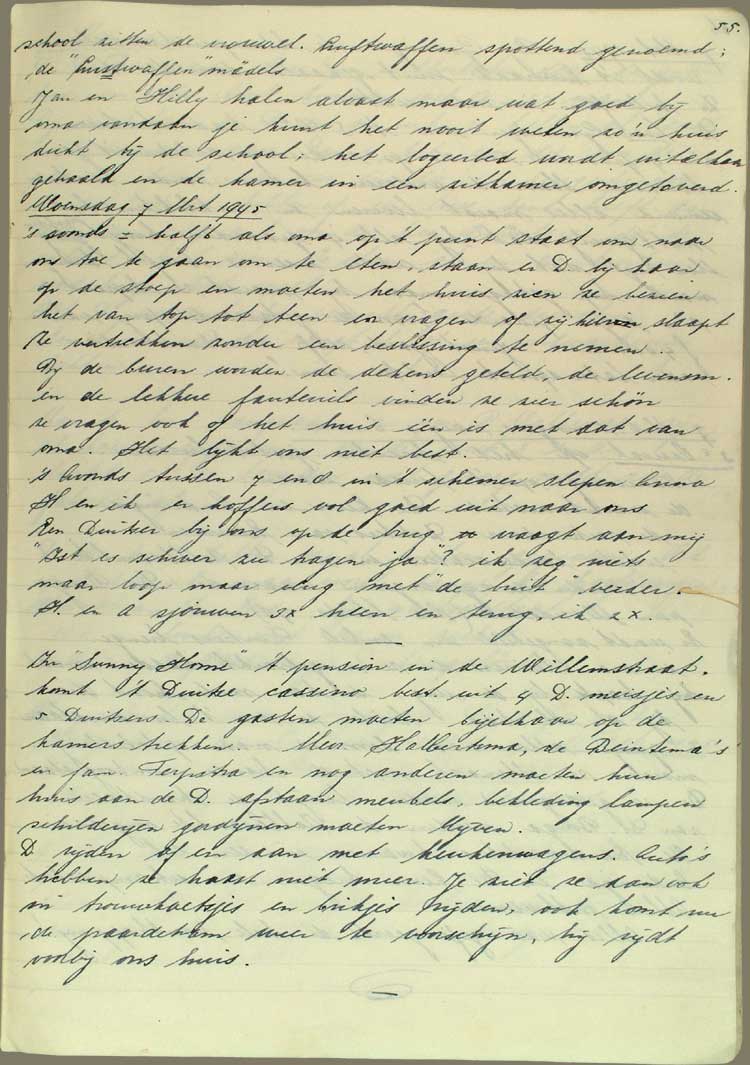 55.
school zitten de vrouwel. Luftwaffen spottend genoemd;
de "Lustwaffen" mädels
Jan en Hilly halen alvast maar wat goed bij
oma vandaan je kunt het nooit weten zo'n huis
dicht bij de school; het logeerbed wordt uit elkaar
gehaald en de kamer in een zitkamer omgetoverd.
Woensdag 7 Mrt 1945
's avonds ± half 6 als oma op 't punt staat om naar
ons toe te gaan om te eten, staan er D. bij haar
op de stoep en moeten het huis zien ze bezien
het van top tot teen en vragen of zij hierin slaapt
Ze vertrekken zonder een beslissing te nemen.
Bij de buren worden de dekens geteld, de levensm.
en de lekkere fauteuils vinden ze zeer schön
ze vragen ook of het huis één is met dat van
oma. Het lijkt ons niet best.
's Avonds tussen 7 en 8 in 't schemer slepen Anna
H en ik er koffers vol goed uit naar ons
Een Duitser bij ons op de brug vraagt aan mij
"Ist es schwer zu tragen ja"? ik zeg niets
maar loop maar vlug met "de buit" verder.
H. en A sjouwen 3x heen en terug, ik 2x.
In "Sunny Home" 't pension in de Willemstraat.
komt 't Duitse cassino best. uit 4 D. meisjes en
5 Duitsers. De gasten moeten bijelkaar op de
kamers trekken. Mevr Halbertsma, de Deintema's
en fam. Terpstra en nog anderen moeten hun
huis aan de D. afstaan meubels, bekleding lampen
schilderijen gordijnen moeten blijven.
D rijden af en aan met keukenwagens. Auto's
hebben ze haast niet meer. Je ziet ze dan ook
in trouwkoetsjes en brikjes rijden, ook komt nu
de paardetram weer te voorschijn, hij rijdt
voorbij ons huis.